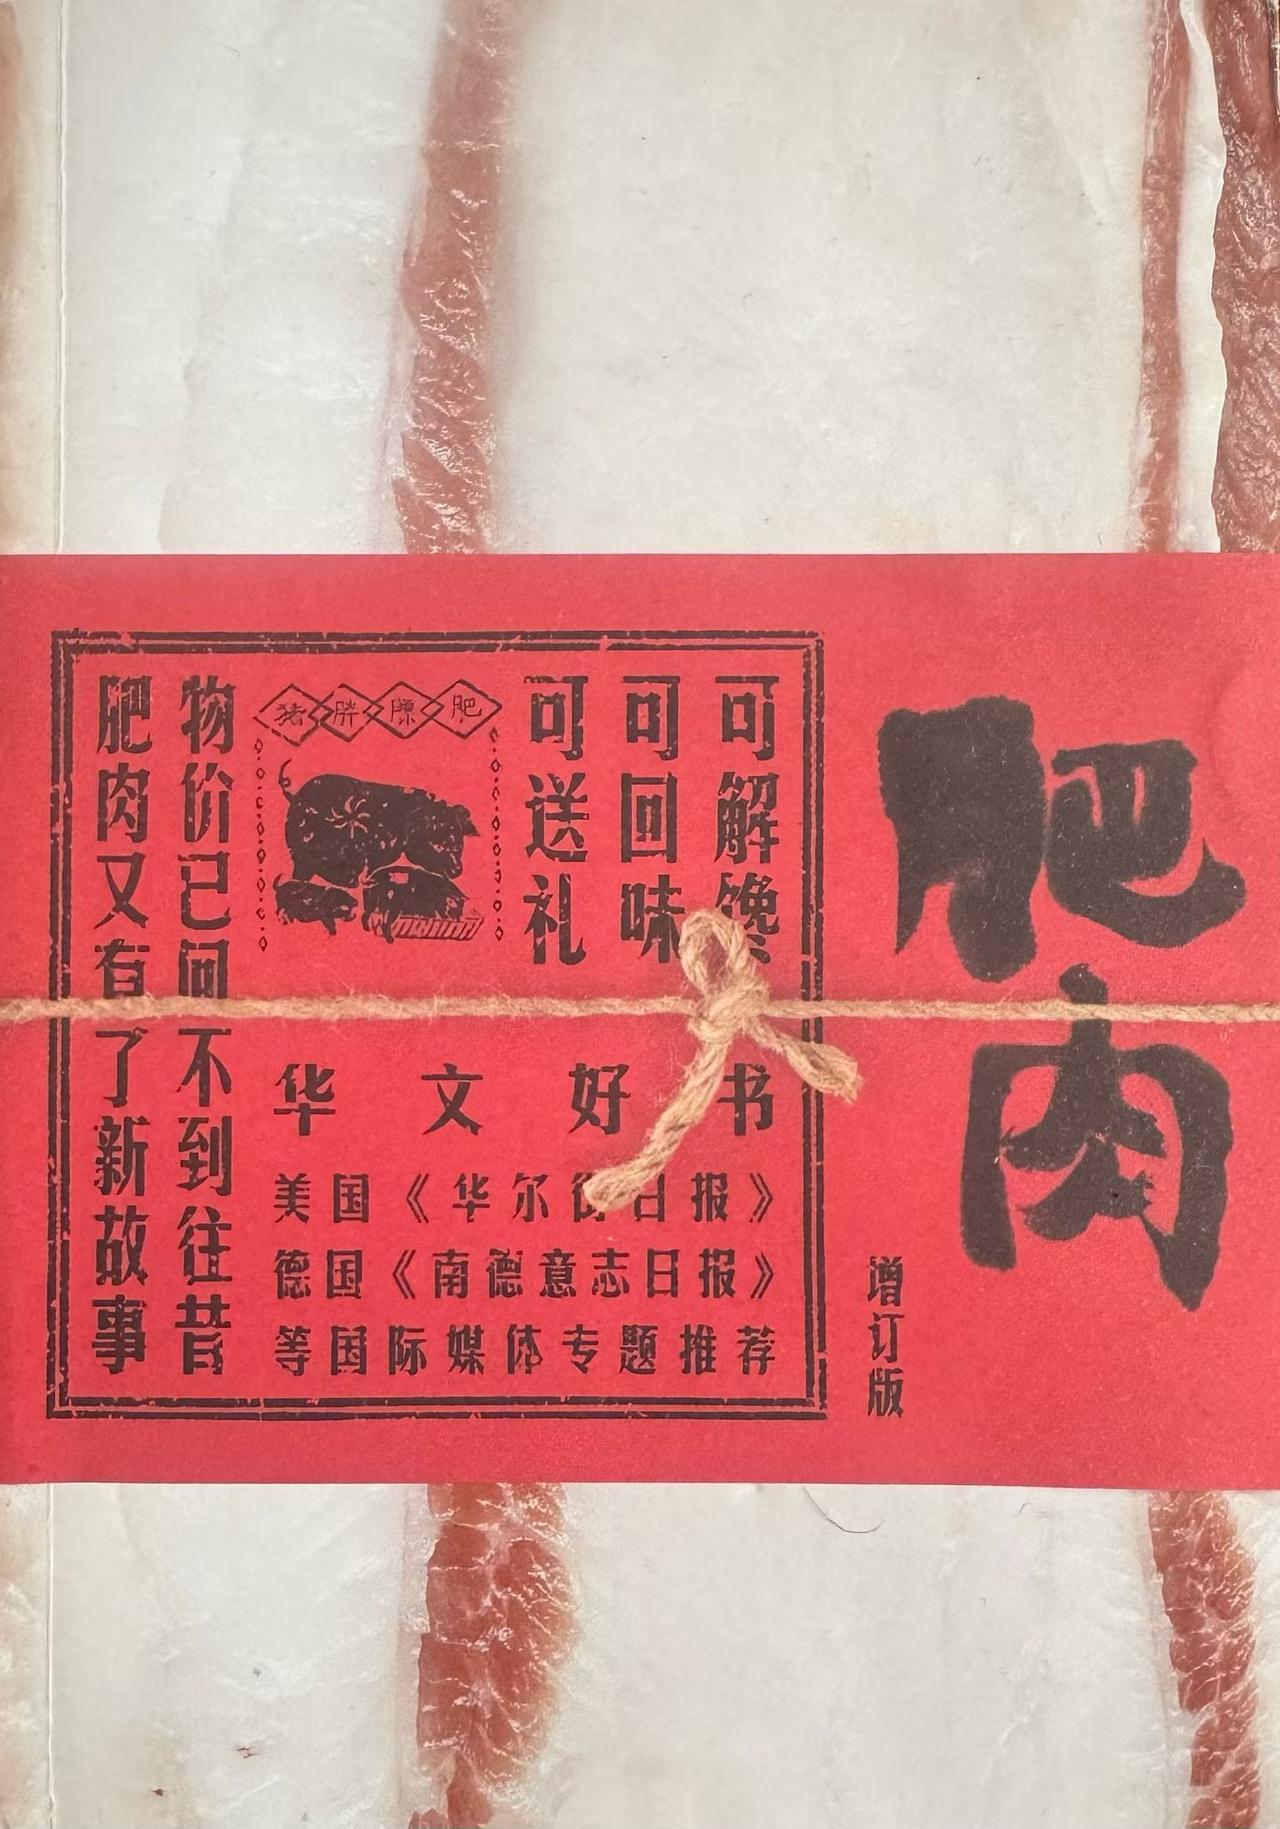 肥肉
增订版
可解馋
可回味
可送礼
肥胖猪
物价已回不到往昔
肥肉又有了新故事
华文好书
美国《华尔街日报》
德国《南德意志日报》
等国际媒体专题推荐